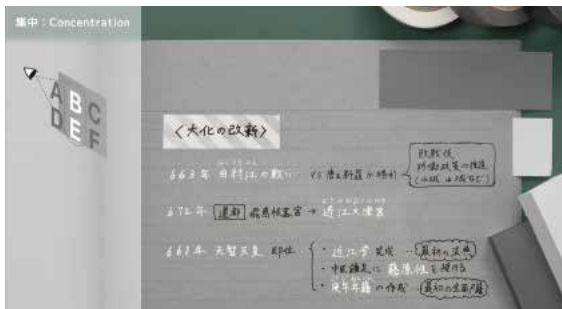 集中：Concentration
A B C
D E F
〈大化の改新〉
663年 白村江の戦い VS 唐&新羅が勝利
敗戦後
防衛政策の推進
(水城 山城など)
672年 遷都 飛鳥板蓋宮 → 近江大津宮
668年 天智天皇 即位
・近江令 完成 … 最初の法典
・中臣鎌足に 藤原姓を授ける
・庚午年籍の作成 … 最初の全国戸籍